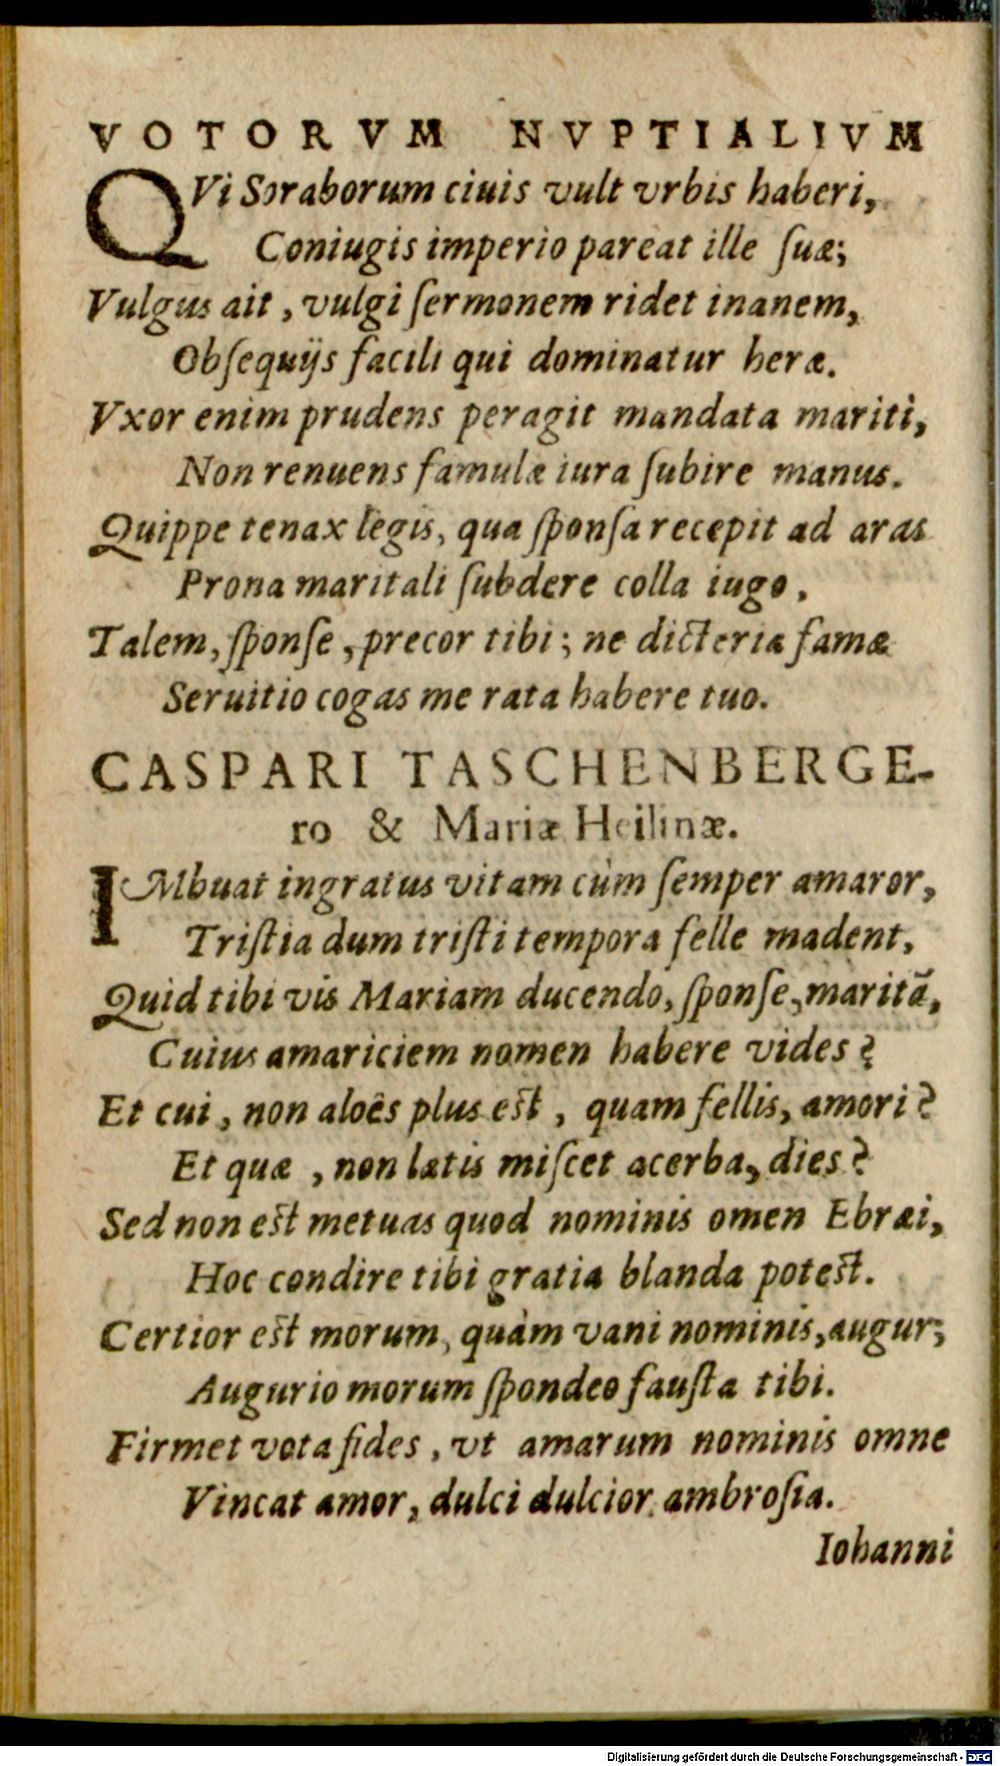 VOTORVM NVPTIALIVM
QVi Soraborum ciuis vult vrbis haberi,
Coniugis imperio pareat ille ſuæ;
Vulgus ait, vulgi ſermonem ridet inanem,
Obſequijs facili qui dominatur heræ.
Vxor enim prudens peragit mandata mariti,
Non renuens famulæ iura ſubire manus.
Quippe tenax legis, qua ſponſa recepit ad aras
Prona maritali ſubdere colla iugo.
Talem, ſponſe, precor tibi; ne dicteria famæ
Seruitio cogas me rata habere tuo.
CASPARI TASCHENBERGE-
ro & Mariæ Heilinæ.
IMbuat ingratus vitam cùm ſemper amaror,
Triſtia dum triſti tempora felle madent,
Quid tibi vis Mariam ducendo, ſponſe, maritã,
Cuius amariciem nomen habere vides?
Et cui, non aloës plus est, quam fellis, amori?
Et quæ, non lætis miſcet acerba, dies?
Sed non est metuas quod nominis omen Ebræi,
Hoc condire tibi gratia blanda potest.
Certior est morum, quàm vani nominis, augur;
Augurio morum ſpondeo fauſta tibi.
Firmet vota fides, vt amarum nominis omne
Vincat amor, dulci dulcior ambroſia.
Iohanni
Digitalisierung gefördert durch die Deutsche Forschungsgemeinschaft - DFG